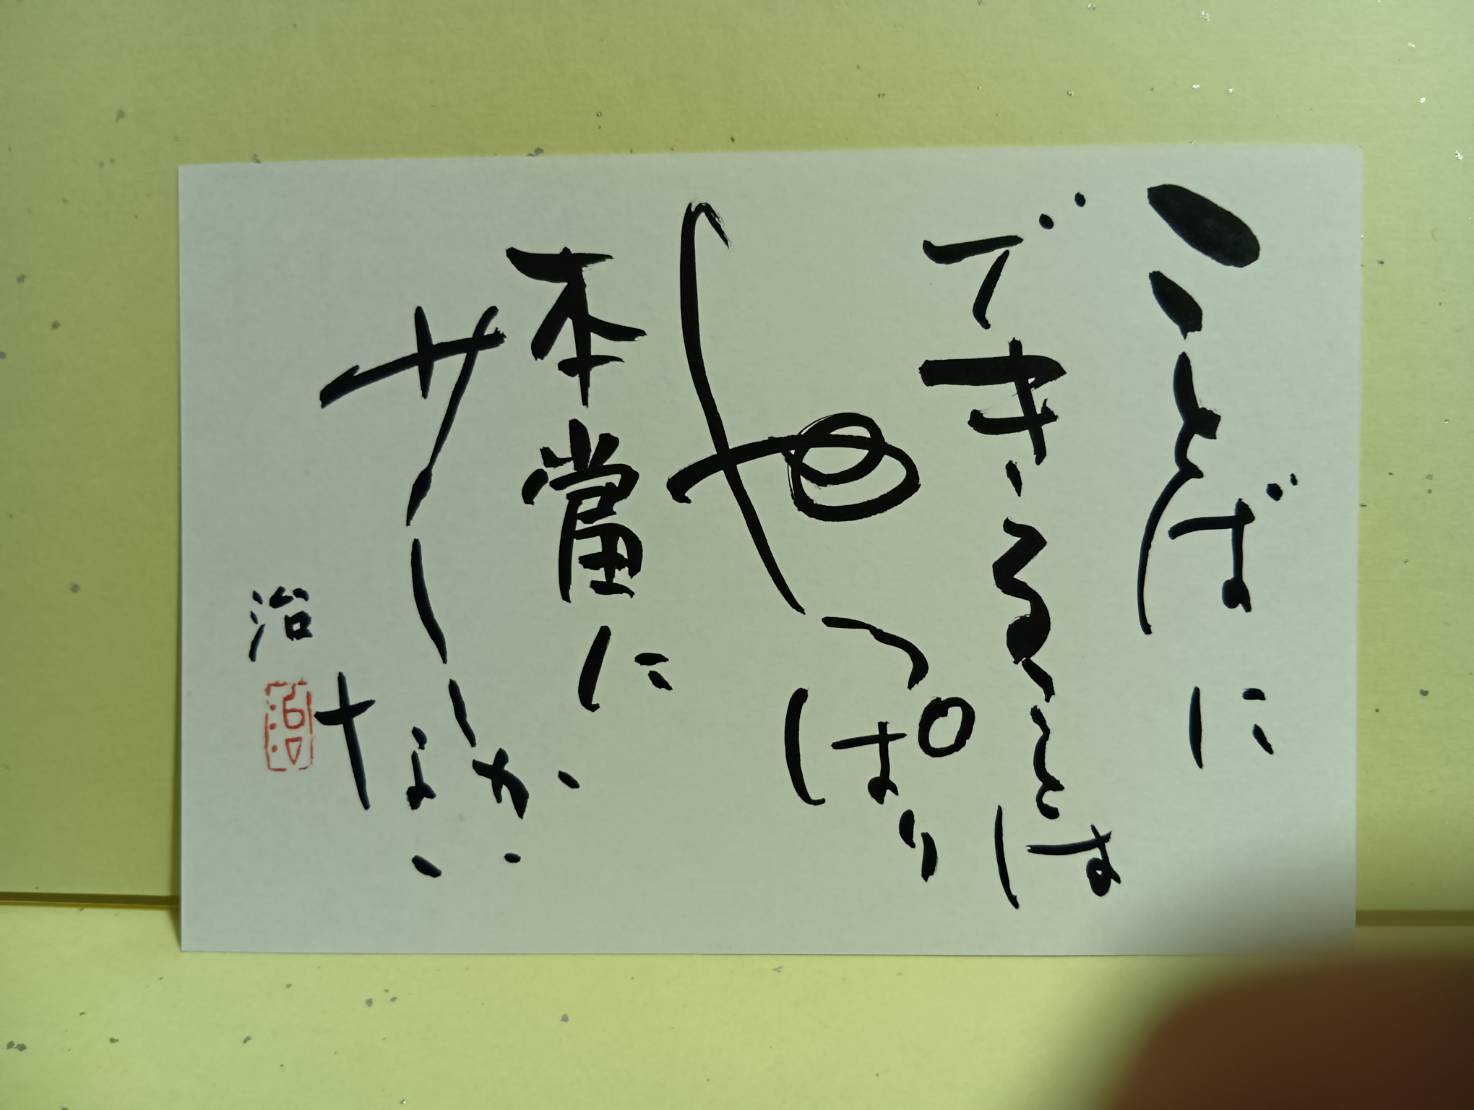 ことばに
できることは
やっぱり
本當に
少ししかない
治
治